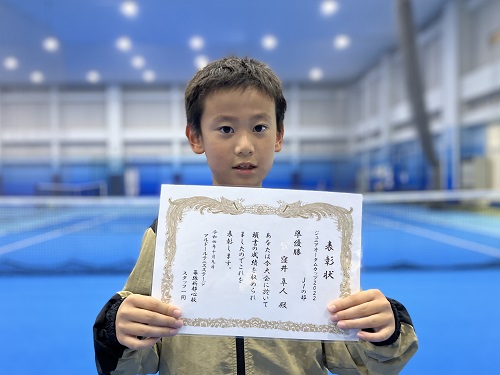 表彰状
ジュニアオータムカップ2022
J1の部
準優勝
窪井 隼人 殿
あなたは今大会に於いて
頭書の成績を収められ
ましたのでこれを
表彰します。
令和四年十月九日
アルドールテニスステージ
幕張新都心校
スタッフ一同